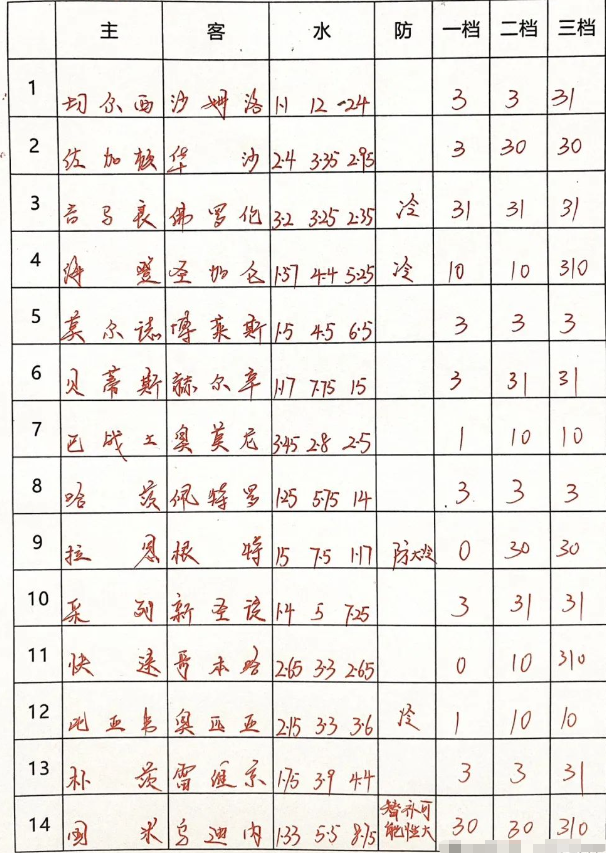 主 客 水 防 一档 二档 三档
1 切尔西 沙姆洛 1.1 12 24 3 3 31
2 佐加顿 华沙 2.4 3.35 2.95 3 30 30
3 音马衰 佛罗伦 3.2 3.25 2.35 冷 31 31 31
4 海登 圣加仑 1.57 4.4 5.25 冷 10 10 310
5 莫尔德 博莱斯 1.5 4.5 6.5 3 3 3
6 贝蒂斯 赫尔辛 1.17 7.75 15 3 31 31
7 巴战士 奥莫尼 3.45 2.8 2.5 1 10 10
8 哈茨 佩特罗 1.25 5.75 14 3 3 3
9 拉恩 根特 15 7.5 1.17 防大冷 0 30 30
10 采列 新圣设 1.4 5 7.25 3 31 31
11 快速 哥本哈 2.65 3.3 2.65 0 10 310
12 比亚韦 奥匹亚 2.15 3.3 3.6 冷 1 10 10
13 朴茨 雷维京 1.75 3.9 4.4 3 3 31
14 图求 乌迪内 1.33 5.5 8.75 替补可
能性大 30 30 310